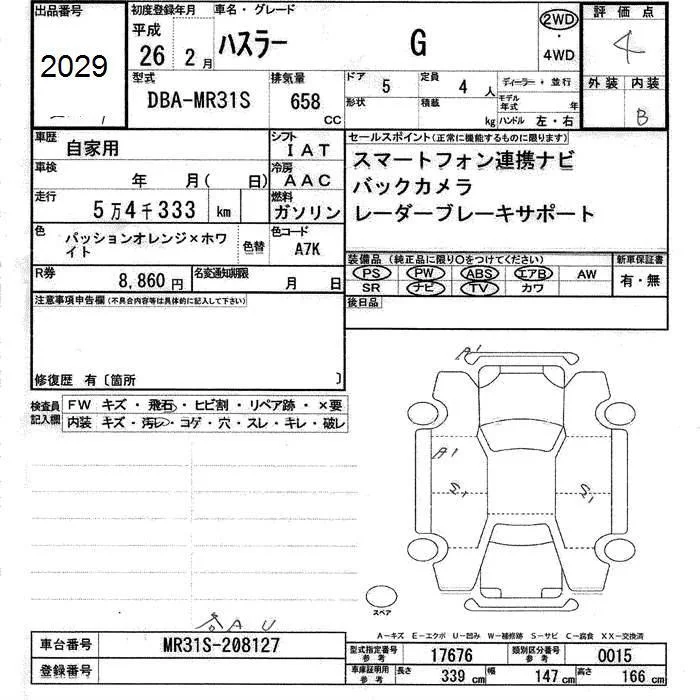 出品番号
2029
初度登録年月
平成
26 2 月
車名・グレード
ハスラー G
2WD
・
4WD
評価点
4
型式
DBA-MR31S
排気量
658 CC
ドア 5
形状
定員 4 人
積載 kg
ディーラー・並行
モデル年式 年
ハンドル 左・右
外装 内装
B
車歴
自家用
シフト
IAT
車検
年 月( 日)
冷房
AAC
走行
5万4千333 km
燃料
ガソリン
色
パッションオレンジ×ホワイト
色替
色コード
A7K
R券
8,860 円
名変通知期限
月 日
セールスポイント(正常に機能するものに限ります)
スマートフォン連携ナビ
バックカメラ
レーダーブレーキサポート
装備品(純正品に限り○をつけてください)
PS PW ABS エアB AW
SR ナビ TV カワ
新車保証書
有・無
後日品
注意事項申告欄(不具合内容等は具体的に記入して下さい)
修復歴 有〔箇所 〕
検査員記入欄
FW キズ・飛石・ヒビ割・リペア跡・×要
内装 キズ・汚レ・コゲ・穴・スレ・キレ・破レ
A1
A1
スペア
A-キズ E-エクボ U-凹み W-補修跡 S-サビ C-腐食 XX-交換済
各AU
車台番号
MR31S-208127
登録番号
型式指定番号 参考
17676
類別区分番号 参考
0015
車庫証明用 参考
長さ 339 cm 幅 147 cm 高さ 166 cm